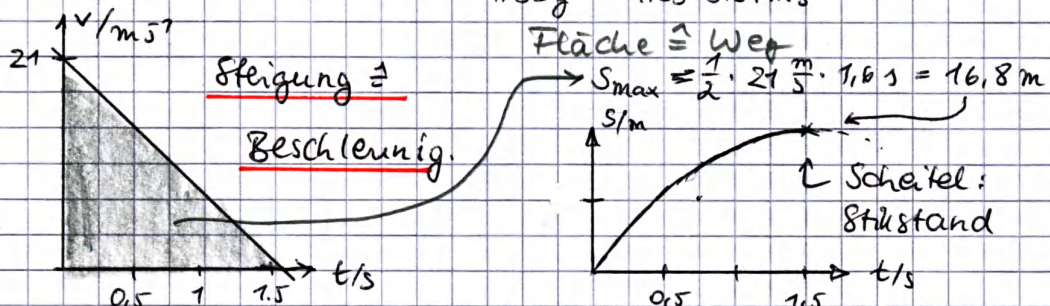 v/ms⁻¹
21
Steigung ≙
Beschleunig.
0,5 1 1.5
t/s
Fläche ≙ Weg
Smax = 1/2 · 21 m/s · 1,6 s = 16,8 m
S/m
Scheitel:
Stillstand
0,5 1,5
t/s